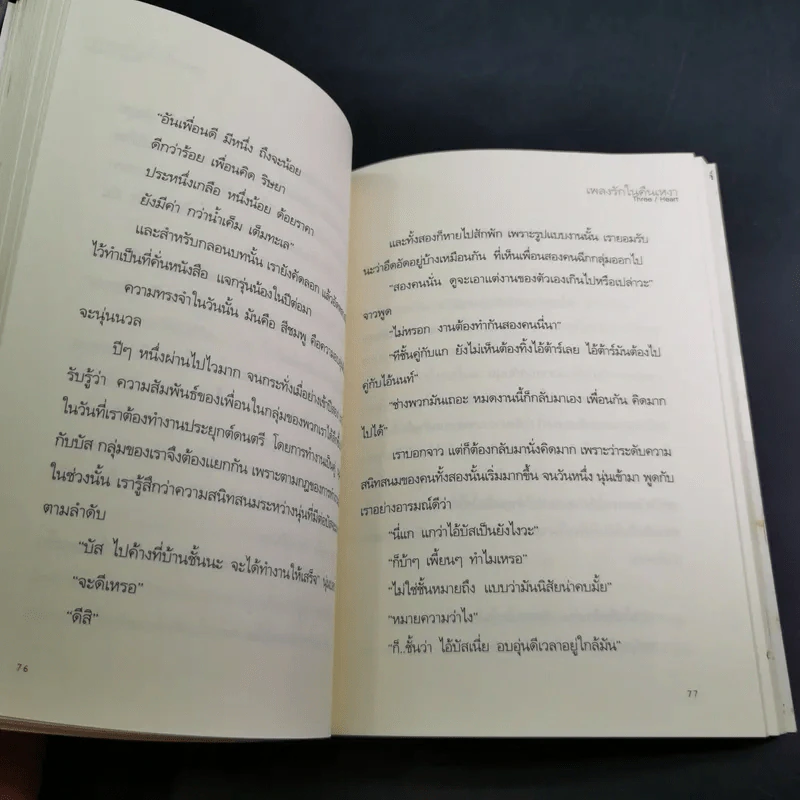 "อันเพื่อนดี มีหนึ่ง ถึงจะน้อย
ดีกว่าร้อย เพื่อนคิด ริษยา
ประหนึ่งเกลือ หนึ่งน้อย ด้อยราคา
ยังมีค่า กว่าน้ำเค็ม เต็มทะเล"
และสำหรับกลอนบทนั้น เรายังคัดลอก
ไว้ทำเป็นที่คั่นหนังสือ แจกรุ่นน้องในปีต่อมา
ความทรงจำในวันนั้น มันคือ สีชมพู
จะนุ่นนวล
ปีๆ หนึ่งผ่านไปไวมาก จนกระทั่งเมื่อย่างเข้า
รับรู้ว่า ความสัมพันธ์ของเพื่อนในกลุ่มของพวกเรา
ในวันที่เราต้องทำงานประยุกต์ดนตรี โดยการทำงานเป็นคู่
กับบัส กลุ่มของเราจึงต้องแยกกัน เพราะตามกฎของการ
ในช่วงนั้น เรารู้สึกว่าความสนิทสนมระหว่างนุ่นที่มีต่อ
ตามลำดับ
"บัส ไปค้างที่บ้านชั้นนะ จะได้ทำงานให้เสร็จ"
"จะดีเหรอ"
"ดีสิ"
76
เพลงรักในคืนเหงา
Three / Heart
และทั้งสองก็หายไปสักพัก เพราะรูปแบบงานนั้น เรายอมรับ
นะว่าอึดอัดอยู่บ้างเหมือนกัน ที่เห็นเพื่อนสองคนฉีกกลุ่มออกไป
"สองคนนั่น ดูจะเอาแต่งานของตัวเองเกินไปหรือเปล่าวะ"
จาวพูด
"ไม่หรอก งานต้องทำกันสองคนนี่นา"
"ทีชั้นคู่กับแก ยังไม่เห็นต้องทิ้งไอ้ต้าร์เลย ไอ้ต้าร์มันต้องไป
คู่กับไอ้นนท์"
"ช่างพวกมันเถอะ หมดงานนี้ก็กลับมาเอง เพื่อนกัน คิดมาก
ไปได้"
เราบอกจาว แต่ก็ต้องกลับมานั่งคิดมาก เพราะว่าระดับความ
สนิทสนมของคนทั้งสองนั้นเริ่มมากขึ้น จนวันหนึ่ง นุ่นเข้ามา พูดกับ
เราอย่างอารมณ์ดีว่า
"นี่แก แกว่าไอ้บัสเป็นยังไงวะ"
"ก็บ้าๆ เพี้ยนๆ ทำไมเหรอ"
"ไม่ใช่ชั้นหมายถึง แบบว่ามันนิสัยน่าคบมั้ย"
"หมายความว่าไง"
"ก็..ชั้นว่า ไอ้บัสเนี่ย อบอุ่นดีเวลาอยู่ใกล้มัน"
77